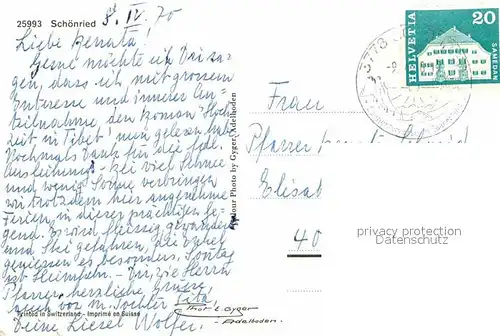 25993 Schönried
8. IV. 70
HELVETIA 20
SAMEDAN
3778
Liebe Renata!
Gerne möchte ich Dir sa-
gen, dass ich mit grossem
Interesse und innerer An-
teilnahme den Roman "Hoch
zeit in Tibet" nun gelesen habe
Nochmals Dank für die fdl.
Ausleihung - Bei viel Schnee
und wenig Sonne verbringen
wir trotzdem hier angenehme
Ferien, in dieser prächtigen Ge-
gend. Es wird fleissig gewandert
und Ski gefahren, die
geniessen es besonders. Sonntag
ist Heimkehr. - Dir, die Herrn
Pfarrer, herzliche Grüsse
auch von m. Tochter
Deine Liesel Wolfer.
Colour Photo by Gyger, Adelboden
Printed in Switzerland - Imprimé en Suisse
Phot. E. Gyger
Adelboden.
Frau
Pfarrer
Elisab
40
privacy protection
Datenschutz